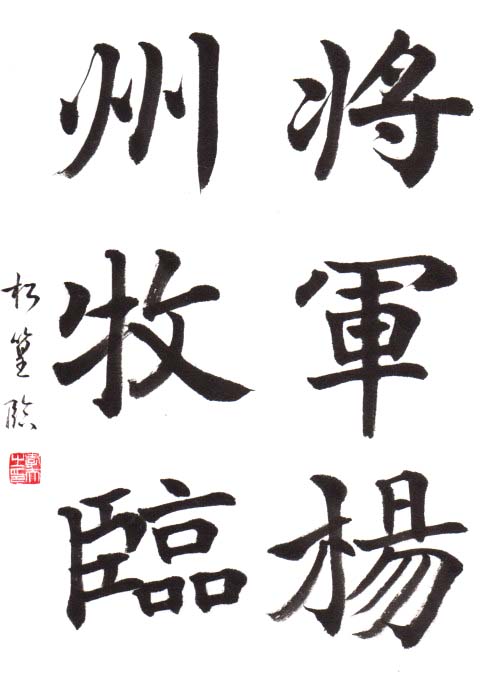 将軍楊
州牧臨
松篁臨